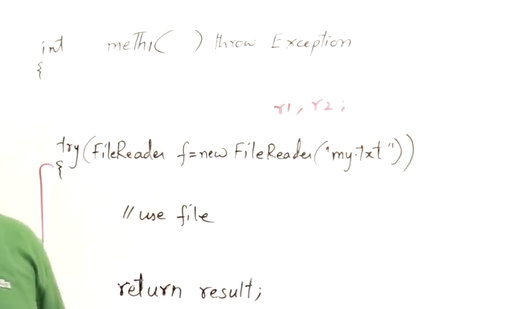 int meth1( ) throw Exception
{
r1, r2;
try(FileReader f=new FileReader("my.txt"))
{
// use file
return result;